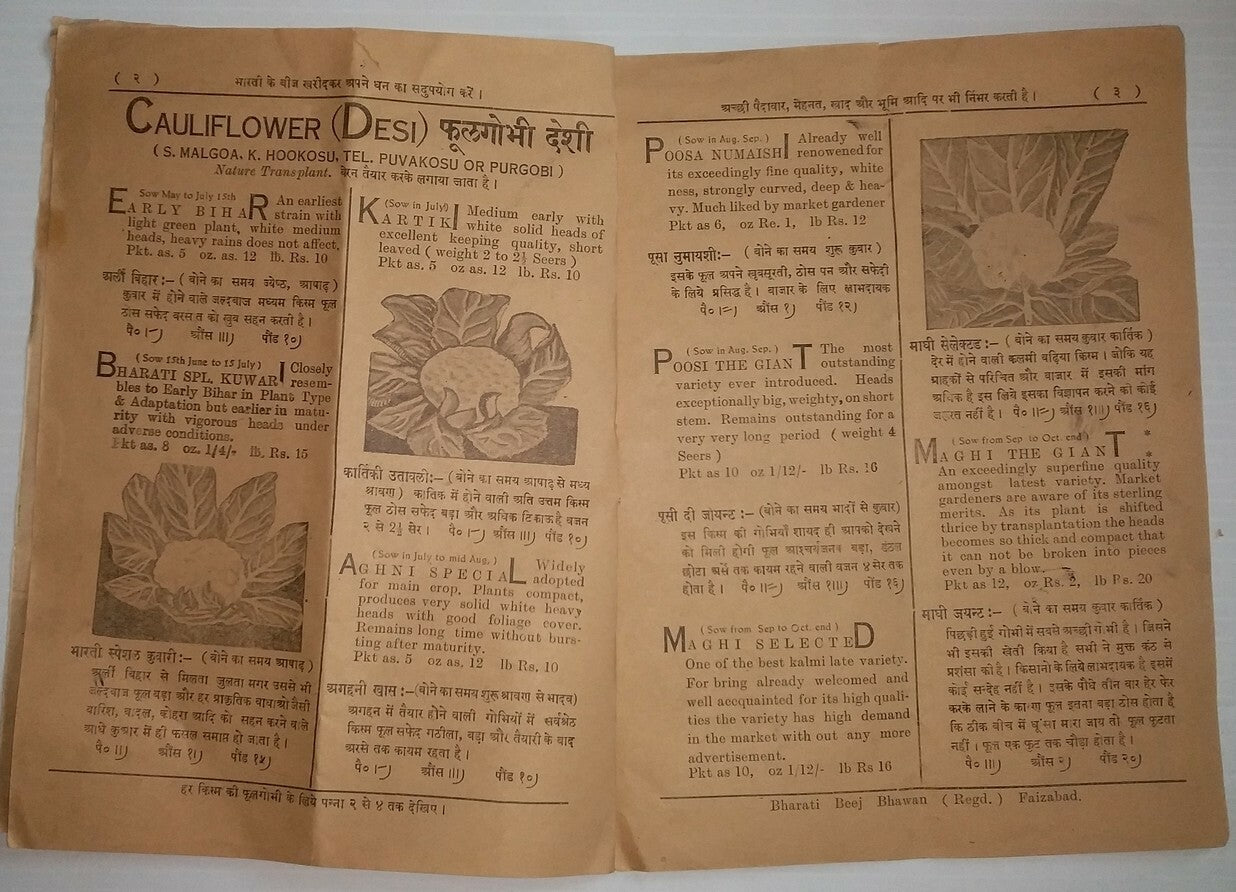 ( २ )
भारती के बीज खरीदकर अपने धन का सदुपयोग करें ।
CAULIFLOWER (DESI) फूलगोभी देशी
( S. MALGOA. K. HOOKOSU, TEL. PUVAKOSU OR PURGOBI )
Nature Transplant. बेरन तैयार करके लगाया जाता है ।
Sow May to July 15th
EARLY BIHAR An earliest
strain with
light green plant, white medium
heads, heavy rains does not affect.
Pkt. as. 5 oz. as. 12 lb. Rs. 10
अर्ली बिहार :– ( बोने का समय ज्येष्ठ, आषाढ़ )
कुवार में होने वाले जल्दबाज मध्यम किस्म फूल
ठोस सफेद बरसात को खूब सहन करती है ।
पै० ।-) औंस ॥।) पौंड १०)
( Sow 15th June to 15 July )
BHARATI SPL. KUWARI Closely
resem-
bles to Early Bihar in Plant Type
& Adaptation but earlier in matu-
rity with vigorous heads under
adverse conditions.
Pkt as. 8 oz. 1/4/- lb. Rs. 15
भारती स्पेशल कुवारी:– (बोने का समय आषाढ़ )
अर्ली बिहार से मिलता जुलता मगर उससे भी
जल्दबाज फूल बड़ा और हर प्राकृतिक बाधाओं जैसी
बारिश, बादल, कोहरा आदि को सहन करने वाले
आधे कुवार में ही फसल समाप्त हो जाता है ।
पै० ॥) औंस १।) पौंड १५)
(Sow in July)
KARTIKI Medium early with
white solid heads of
excellent keeping quality, short
leaved ( weight 2 to 2½ Seers )
Pkt as. 5 oz as. 12 lb. Rs. 10
कार्तिकी उतावली:– (बोने का समय आषाढ़ से मध्य
श्रावण ) कातिक में होने वाली अति उत्तम किस्म
फूल ठोस सफेद बड़ा और अधिक टिकाऊ है वजन
२ से २½ सेर । पै० ।-) औंस ॥।) पौंड १०)
(Sow in July to mid Aug. )
AGHNI SPECIAL Widely
adopted
for main crop. Plants compact,
produces very solid white heavy
heads with good foliage cover.
Remains long time without burs-
ting after maturity.
Pkt as. 5 oz as. 12 lb Rs. 10
अगहनी खास :–(बोने का समय शुरू श्रावण से भादव)
अगहन में तैयार होने वाली गोभियों में सर्वश्रेष्ठ
किस्म फूल सफेद गठीला, बड़ा और तैयारी के बाद
अरसे तक कायम रहता है ।
पै० ।-) औंस ॥।) पौंड १०)
हर किस्म की फूलगोभी के लिये पन्ना २ से ४ तक देखिए ।
अच्छी पैदावार, मेहनत, खाद और भूमि आदि पर भी निंभर करती है ।
( ३ )
( Sow in Aug. Sep. )
POOSA NUMAISHI Already well
renowened for
its exceedingly fine quality, white
ness, strongly curved, deep & hea-
vy. Much liked by market gardener
Pkt as 6, oz Re. 1, lb Rs. 12
पूसा नुमायशी:– ( बोने का समय शुरू कुवार )
इसके फूल अपने खूबसूरती, ठोस पन और सफेदी
के लिये प्रसिद्ध है । बाजार के लिए लाभदायक
पै० ।=) औंस १) पौंड १२)
( Sow in Aug. Sep. )
POOSI THE GIANT The most
outstanding
variety ever introduced. Heads
exceptionally big, weighty, on short
stem. Remains outstanding for a
very very long period ( weight 4
Seers )
Pkt as 10 oz 1/12/- lb Rs. 16
पूसी दी जोयन्ट :– (बोने का समय भादों से कुवार)
इस किस्म की गोभियाँ शायद ही आपको देखने
को मिली होगी फूल आश्चर्यजनक बड़ा, डंठल
छोटा अर्से तक कायम रहने वाली वजन ४ सेर तक
होता है । पै० ॥=) औंस १॥।) पौंड १६)
( Sow from Sep to Oct. end )
MAGHI SELECTED
One of the best kalmi late variety.
For bring already welcomed and
well accquainted for its high quali-
ties the variety has high demand
in the market with out any more
advertisement.
Pkt as 10, oz 1/12/- lb Rs 16
माघी सेलेक्टड :– ( बोने का समय कुवार कार्तिक )
देर में होने वाली कलमी बढ़िया किस्म । जोकि यह
ग्राहकों से परिचित और बाजार में इसकी मांग
अधिक है इस लिये इसका विज्ञापन करने की कोई
जहरत नहीं है । पै० ॥=) औंस १॥।) पौंड १६)
( Sow from Sep to Oct. end )
MAGHI THE GIANT * *
An exceedingly superfine quality
amongst latest variety. Market
gardeners are aware of its sterling
merits. As its plant is shifted
thrice by transplantation the heads
becomes so thick and compact that
it can not be broken into pieces
even by a blow.
Pkt as 12, oz Rs. 2, lb Ps. 20
माघी जयन्ट :– ( बोने का समय कुवार कार्तिक )
पिछड़ी हुई गोभी में सबसे अच्छी गोभी है । जिसने
भी इसकी खेती किया है सभी ने मुक्त कंठ से
प्रशंसा की है । किसानों के लिये लाभदायक है इसमें
कोई सन्देह नहीं है । इसके पौधे तीन बार हेर फेर
करके लाने के कारण फूल इतना बड़ा ठोस होता है
कि ठीक बीच में घूंसा मारा जाय तो फूल फूटता
नहीं । फूल एक फुट तक चौड़ा होता है ।
पै० ॥।) औंस २) पौंड २०)
Bharati Beej Bhawan ( Regd. ) Faizabad.